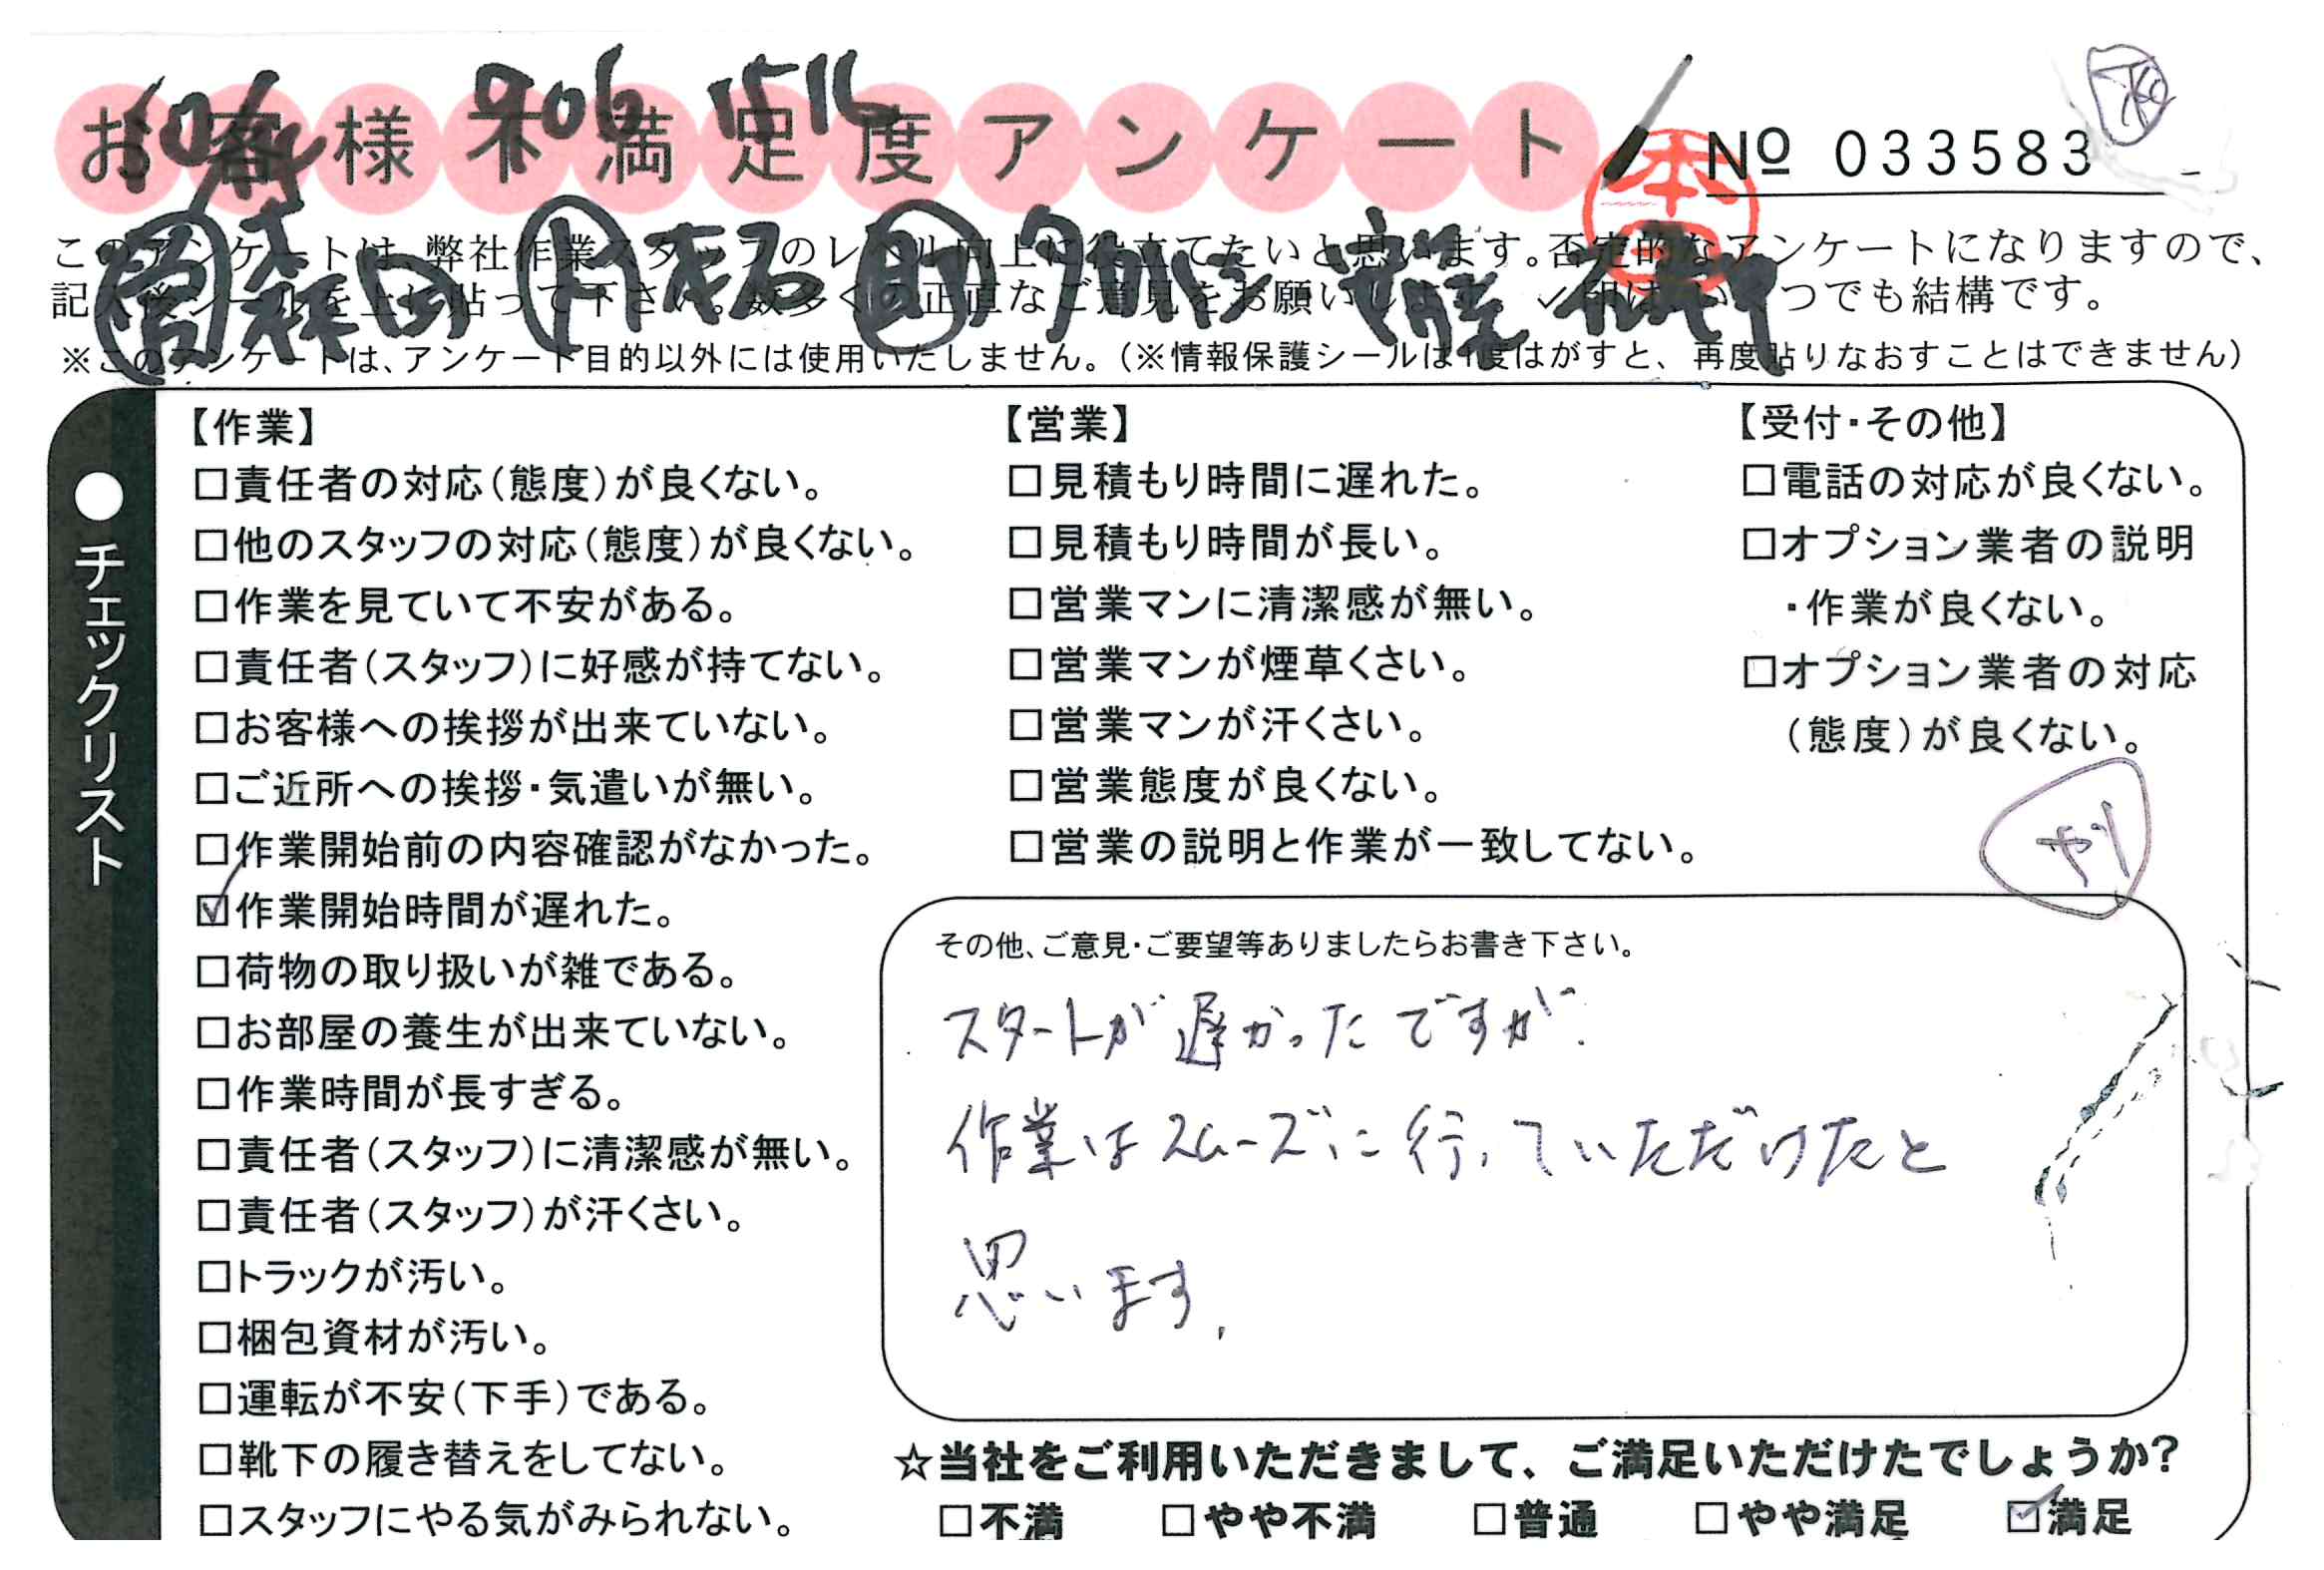 お客様不満足度アンケート
№ 033583
906 1516
このアンケートは、弊社作業スタッフのレベル向上に役立てたいと思います。否定的なアンケートになりますので、
記入後シールを上に貼って下さい。数多くの正直なご意見をお願いします。✓印はいくつでも結構です。
※このアンケートは、アンケート目的以外には使用いたしません。(※情報保護シールは1度はがすと、再度貼りなおすことはできません)
●チェックリスト
【作業】
□責任者の対応(態度)が良くない。
□他のスタッフの対応(態度)が良くない。
□作業を見ていて不安がある。
□責任者(スタッフ)に好感が持てない。
□お客様への挨拶が出来ていない。
□ご近所への挨拶・気遣いが無い。
□作業開始前の内容確認がなかった。
☑作業開始時間が遅れた。
□荷物の取り扱いが雑である。
□お部屋の養生が出来ていない。
□作業時間が長すぎる。
□責任者(スタッフ)に清潔感が無い。
□責任者(スタッフ)が汗くさい。
□トラックが汚い。
□梱包資材が汚い。
□運転が不安(下手)である。
□靴下の履き替えをしてない。
□スタッフにやる気がみられない。
【営業】
□見積もり時間に遅れた。
□見積もり時間が長い。
□営業マンに清潔感が無い。
□営業マンが煙草くさい。
□営業マンが汗くさい。
□営業態度が良くない。
□営業の説明と作業が一致してない。
【受付・その他】
□電話の対応が良くない。
□オプション業者の説明
・作業が良くない。
□オプション業者の対応
(態度)が良くない。
その他、ご意見・ご要望等ありましたらお書き下さい。
スタートが遅かったですが、
作業はスムーズに行っていただけたと
思います。
☆当社をご利用いただきまして、ご満足いただけたでしょうか?
□不満 □やや不満 □普通 □やや満足 ☑満足